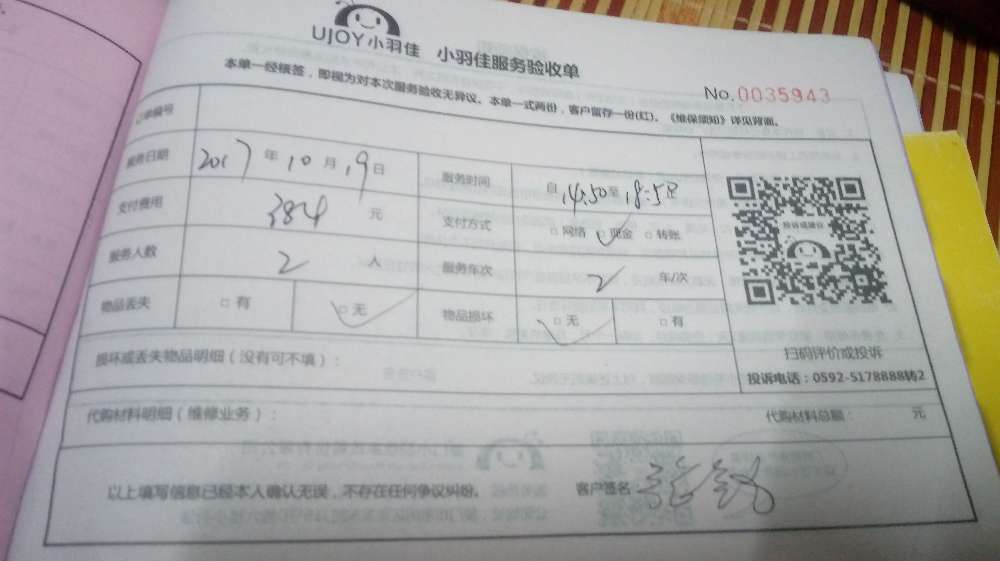 UJOY小羽佳 小羽佳服务验收单
本单一经核签，即视为对本次服务验收无异议。本单一式两份，客户留存一份(红)。《维保须知》详见背面。
No.0035943
订单编号
服务日期 2017年10月19日 服务时间 自14:50至18:58
支付费用 384元 支付方式 □网络 □现金 □转账
服务人数 2人 服务车次 2车/次
物品丢失 □有 □无 物品损坏 □无 □有
投诉或建议
扫码评价或投诉
投诉电话：0592-5178888转2
损坏或丢失物品明细（没有可不填）：
代购材料明细（维修业务）： 代购材料总额： 元
以上填写信息已经本人确认无误，不存在任何争议纠纷。 客户签名